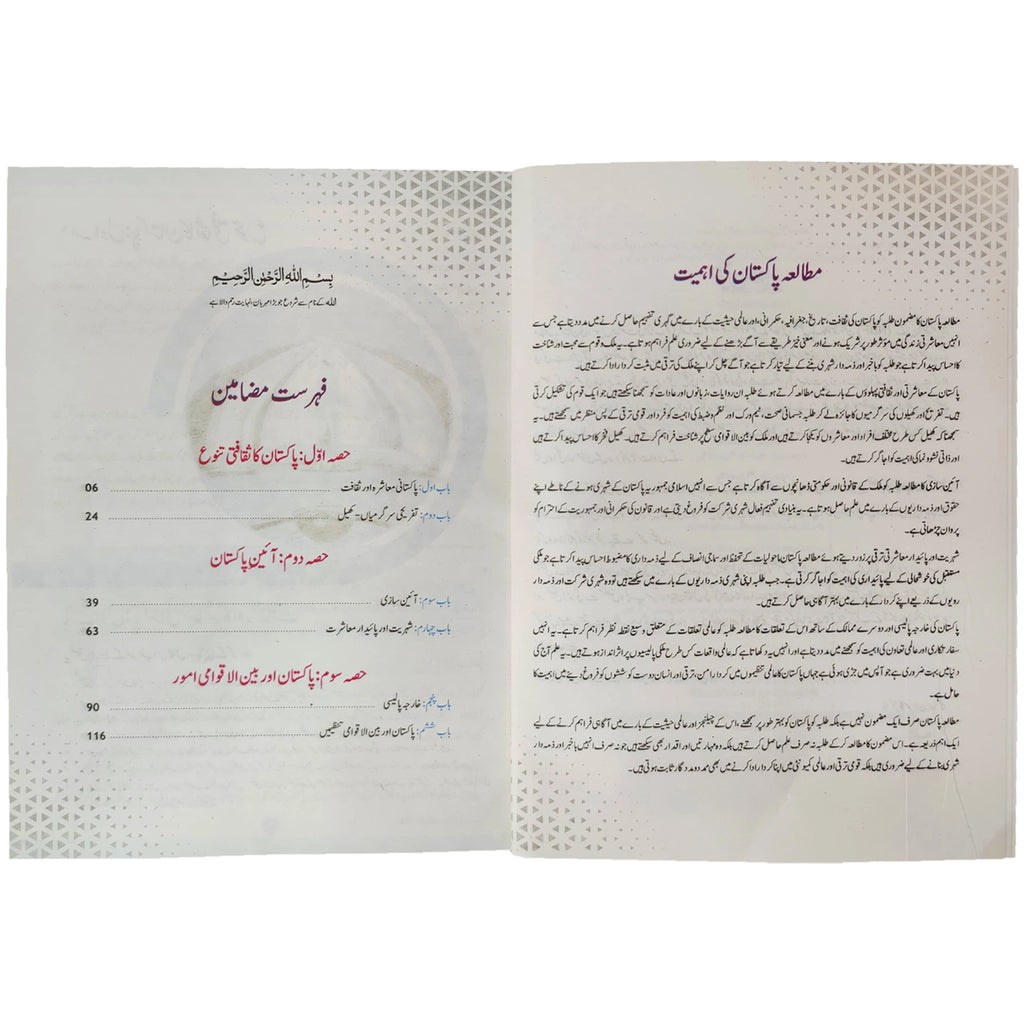 بِسْمِ اللهِ الرَّحْمٰنِ الرَّحِیْمِ
الله کے نام سے شروع جو بڑا مہربان، نہایت رحم والا ہے
فہرست مضامین
حصہ اوّل: پاکستان کا ثقافتی تنوع
باب اول: پاکستانی معاشرہ اور ثقافت 06
باب دوم: تفریحی سرگرمیاں - کھیل 24
حصہ دوم: آئینِ پاکستان
باب سوم: آئین سازی 39
باب چہارم: شہریت اور پائیدار معاشرت 63
حصہ سوم: پاکستان اور بین الاقوامی امور
باب پنجم: خارجہ پالیسی 90
باب ششم: پاکستان اور بین الاقوامی تنظیمیں 116
مطالعہ پاکستان کی اہمیت
مطالعہ پاکستان کا مضمون طلبہ کو پاکستان کی ثقافت، تاریخ، جغرافیہ، حکمرانی، اور عالمی حیثیت کے بارے میں گہری تفہیم حاصل کرنے میں مدد دیتا ہے جس سے
انہیں معاشرتی زندگی میں مؤثر طور پر شریک ہونے اور معنی خیز طریقے سے آگے بڑھنے کے لیے ضروری علم فراہم ہوتا ہے۔ یہ ملک و قوم سے محبت اور شناخت
کا احساس پیدا کرتا ہے جو طلبہ کو باخبر اور ذمہ دار شہری بننے کے لیے تیار کرتا ہے جو آگے چل کر اپنے ملک کی ترقی میں مثبت کردار ادا کرتے ہیں۔
پاکستان کے معاشرتی اور ثقافتی پہلوؤں کے بارے میں مطالعہ کرتے ہوئے طلبہ ان روایات، زبانوں اور عادات کو سمجھنا سیکھتے ہیں جو ایک قوم کی تشکیل کرتی
ہیں۔ تفریح اور کھیلوں کی سرگرمیوں کا جائزہ لے کر طلبہ جسمانی صحت، ٹیم ورک اور نظم و ضبط کی اہمیت کو فرد اور قومی ترقی کے پس منظر میں سمجھتے ہیں۔ یہ
سمجھنا کہ کھیل کس طرح مختلف افراد اور معاشروں کو یکجا کرتے ہیں اور ملک کو بین الاقوامی سطح پر شناخت فراہم کرتے ہیں۔ کھیل فخر کا احساس پیدا کرتا ہے
اور ذاتی نشوونما کی اہمیت کو اجاگر کرتا ہے۔
آئین سازی کا مطالعہ طلبہ کو ملک کے قانونی اور حکومتی ڈھانچوں سے آگاہ کرتا ہے جس سے انہیں اسلامی جمہوریہ پاکستان کے شہری ہونے کے ناطے اپنے
حقوق اور ذمہ داریوں کے بارے میں علم حاصل ہوتا ہے۔ یہ بنیادی تفہیم فعال شہری شرکت کو فروغ دیتی ہے اور قانون کی حکمرانی اور جمہوریت کے احترام کو
پروان چڑھاتی ہے۔
شہریت اور پائیدار معاشرتی ترقی پر زور دیتے ہوئے مطالعہ پاکستان ماحولیات کے تحفظ اور سماجی انصاف کے لیے ذمہ داری کا مضبوط احساس پیدا کرتا ہے جو ملکی
مستقبل کی خوشحالی کے لیے پائیداری کی اہمیت کو اجاگر کرتی ہے۔ جب طلبہ اپنی شہری ذمہ داریوں کے بارے میں سیکھتے ہیں تو وہ شہری شرکت اور ذمہ دار
رویوں کے ذریعے اپنے کردار کے بارے میں بہتر آگاہی حاصل کرتے ہیں۔
پاکستان کی خارجہ پالیسی اور دوسرے ممالک کے ساتھ اس کے تعلقات کا مطالعہ طلبہ کو عالمی تعلقات کے متعلق وسیع نقطہ نظر فراہم کرتا ہے۔ یہ انہیں
سفارتکاری اور عالمی تعاون کی اہمیت کو سمجھنے میں مدد دیتا ہے اور انہیں یہ دکھاتا ہے کہ عالمی واقعات کس طرح ملکی پالیسیوں پر اثر انداز ہوتے ہیں۔ یہ علم آج کی
دنیا میں بہت ضروری ہے جو آپس میں جڑی ہوئی ہے جہاں پاکستان کے عالمی تنظیموں میں کردار امن، ترقی اور انسان دوست کوششوں کو فروغ دینے میں اہمیت کا
حامل ہے۔
مطالعہ پاکستان صرف ایک مضمون نہیں ہے بلکہ طلبہ کو پاکستان کو بہتر طور پر سمجھنے، اس کے چیلنجز اور عالمی حیثیت کے بارے میں آگاہی فراہم کرنے کے لیے
ایک اہم ذریعہ ہے۔ اس مضمون کا مطالعہ کر کے طلبہ نہ صرف علم حاصل کرتے ہیں بلکہ وہ مہارتیں اور اقدار بھی سیکھتے ہیں جو نہ صرف انہیں باخبر اور ذمہ دار
شہری بنانے کے لیے ضروری ہیں بلکہ قومی ترقی اور عالمی کمیونٹی میں اپنا کردار ادا کرنے میں بھی ممد و مددگار ثابت ہوتی ہیں۔